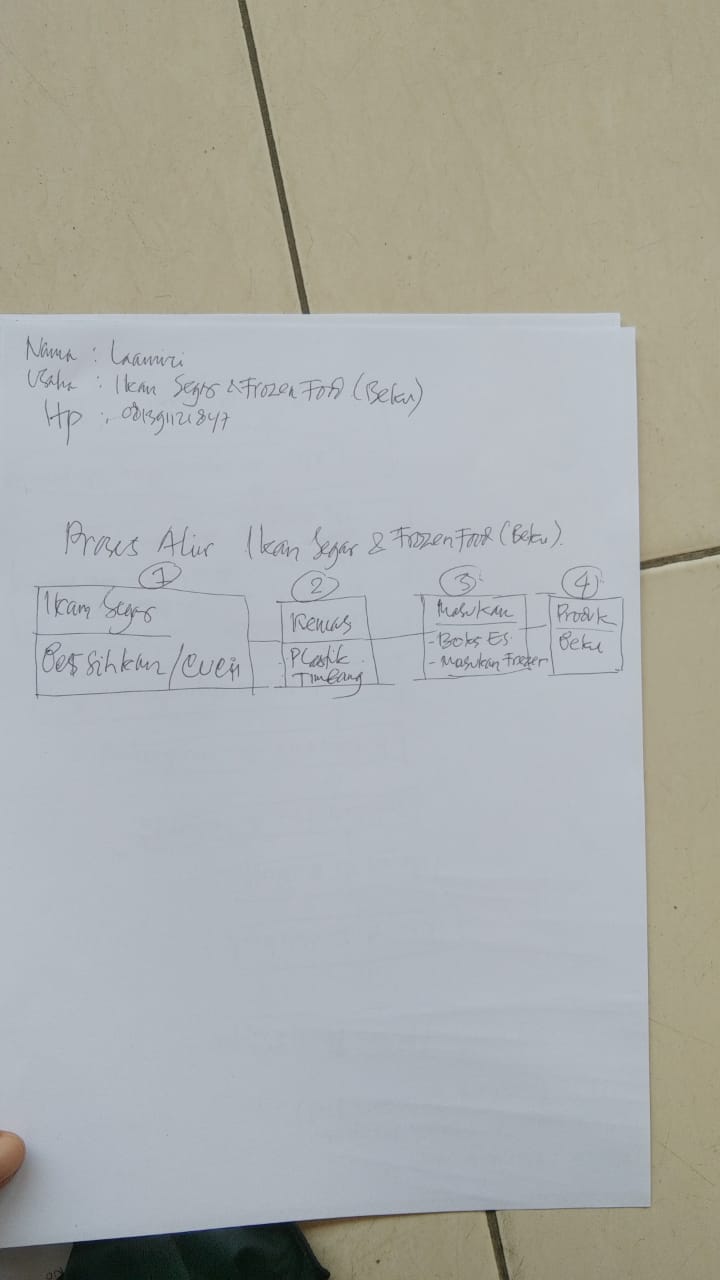 Nama : Laamiri
Usaha : Ikan Segar & Frozen Food (Beku)
Hp : 081391121847
Proses Alir Ikan Segar & Frozen Food (Beku).
1
2
3
4
Ikan Segar
Bersihkan / Cuci
Kemas
Plastik
Timbang
Masukan
- Boks Es.
- Masukan Frezer
Produk
Beku